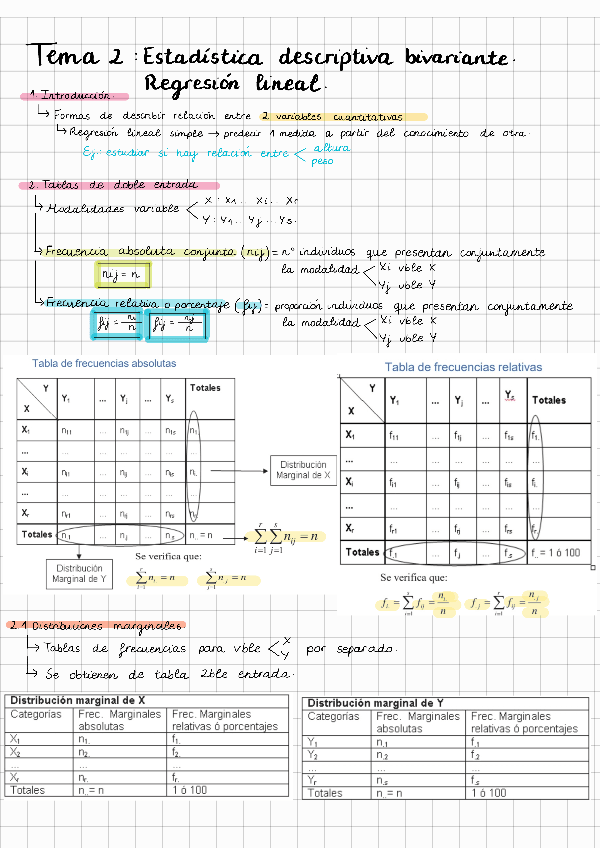 Tema 2: Estadística descriptiva bivariante.
Regresión lineal.
1. Introducción.
↳ Formas de describir relación entre 2 variables cuantitativas
↳ Regresión lineal simple → predecir 1 medida a partir del conocimiento de otra.
Ej: estudiar si hay relación entre < altura
peso
2. Tablas de doble entrada
↳ Modalidades variable < X: X1... Xi... Xr
Y: Y1... Yj... Ys.
↳ Frecuencia absoluta conjunta (nij) = nº individuos que presentan conjuntamente
la modalidad < Xi vble X
Yj vble Y
nij = n
↳ Frecuencia relativa o porcentaje (fij) = proporción individuos que presentan conjuntamente
la modalidad < Xi vble X
Yj vble Y
Tabla de frecuencias absolutas
Y X Y1 ... Yj ... Ys Totales
X1 n11 ... n1j ... n1s n1.
... ... ... ... ... ... ...
Xi ni1 ... nij ... nis ni.
... ... ... ... ... ...
Xr nr1 ... nrj ... nrs nr.
Totales n.1 ... n.j ... n.s n.. = n
Distribución
Marginal de X
Distribución
Marginal de Y
Se verifica que:
Tabla de frecuencias relativas
Y X Y1 ... Yj ... Ys Totales
X1 f11 ... f1j ... f1s f1.
... ... ... ... ... ... ...
Xi fi1 ... fij ... fis fi.
... ... ... ... ... ... ...
Xr fr1 ... frj ... frs fr.
Totales f.1 ... f.j ... f.s f.. = 1 ó 100
Se verifica que:
2.1 Distribuciones marginales
↳ Tablas de frecuencias para vble < X Y por separado.
↳ Se obtienen de tabla 2ble entrada.
Distribución marginal de X
Categorías Frec. Marginales absolutas Frec. Marginales relativas ó porcentajes
X1 n1. f1.
X2 n2. f2.
... ... ...
Xr nr. fr.
Totales n..= n 1 ó 100
Distribución marginal de Y
Categorías Frec. Marginales absolutas Frec. Marginales relativas ó porcentajes
Y1 n.1 f.1
Y2 n.2 f.2
... ... ...
Yr n.s f.s
Totales n..= n 1 ó 100